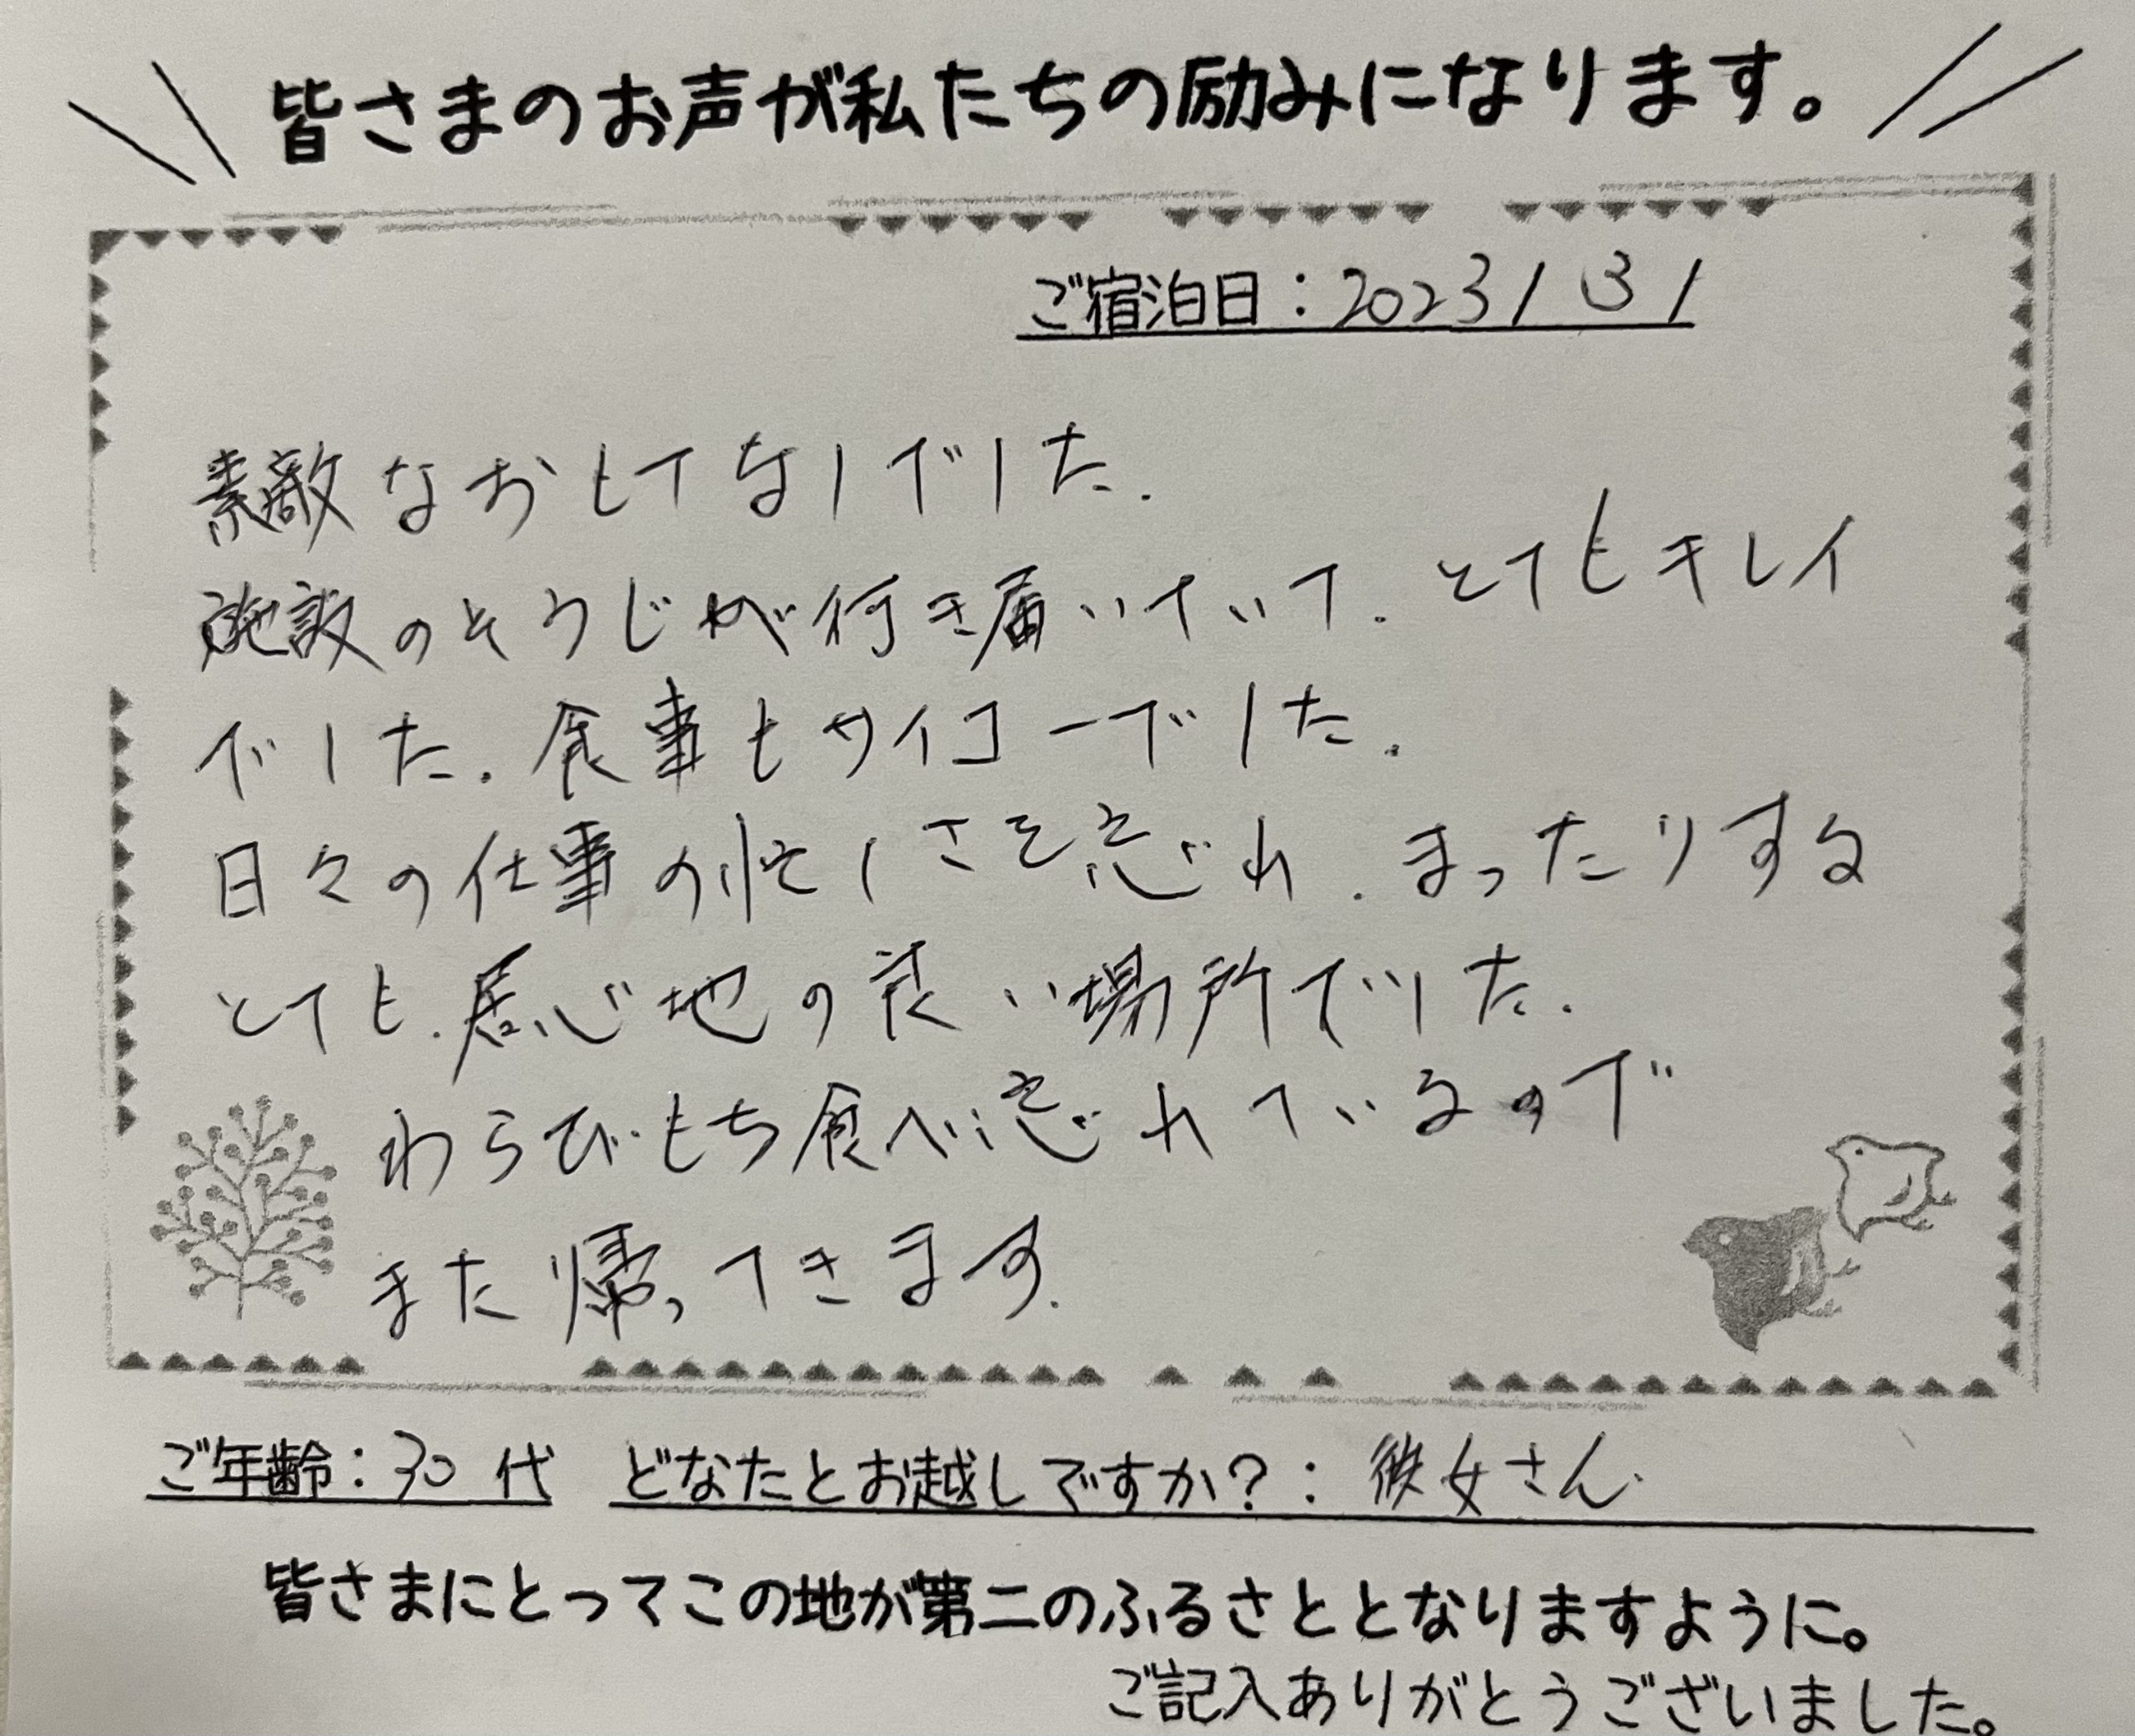 皆さまのお声が私たちの励みになります。
ご宿泊日:2023/3/
素敵なおもてなしでした.
施設のそうじが行き届いていて.とてもキレイ
でした.食事もサイコーでした.
日々の仕事の忙しさを忘れ.まったりする
とても.居心地の良い場所でした.
わらびもち食べ忘れているので
また帰ってきます.
ご年齢:30代 どなたとお越しですか?:彼女さん.
皆さまにとってこの地が第二のふるさととなりますように。
ご記入ありがとうございました。